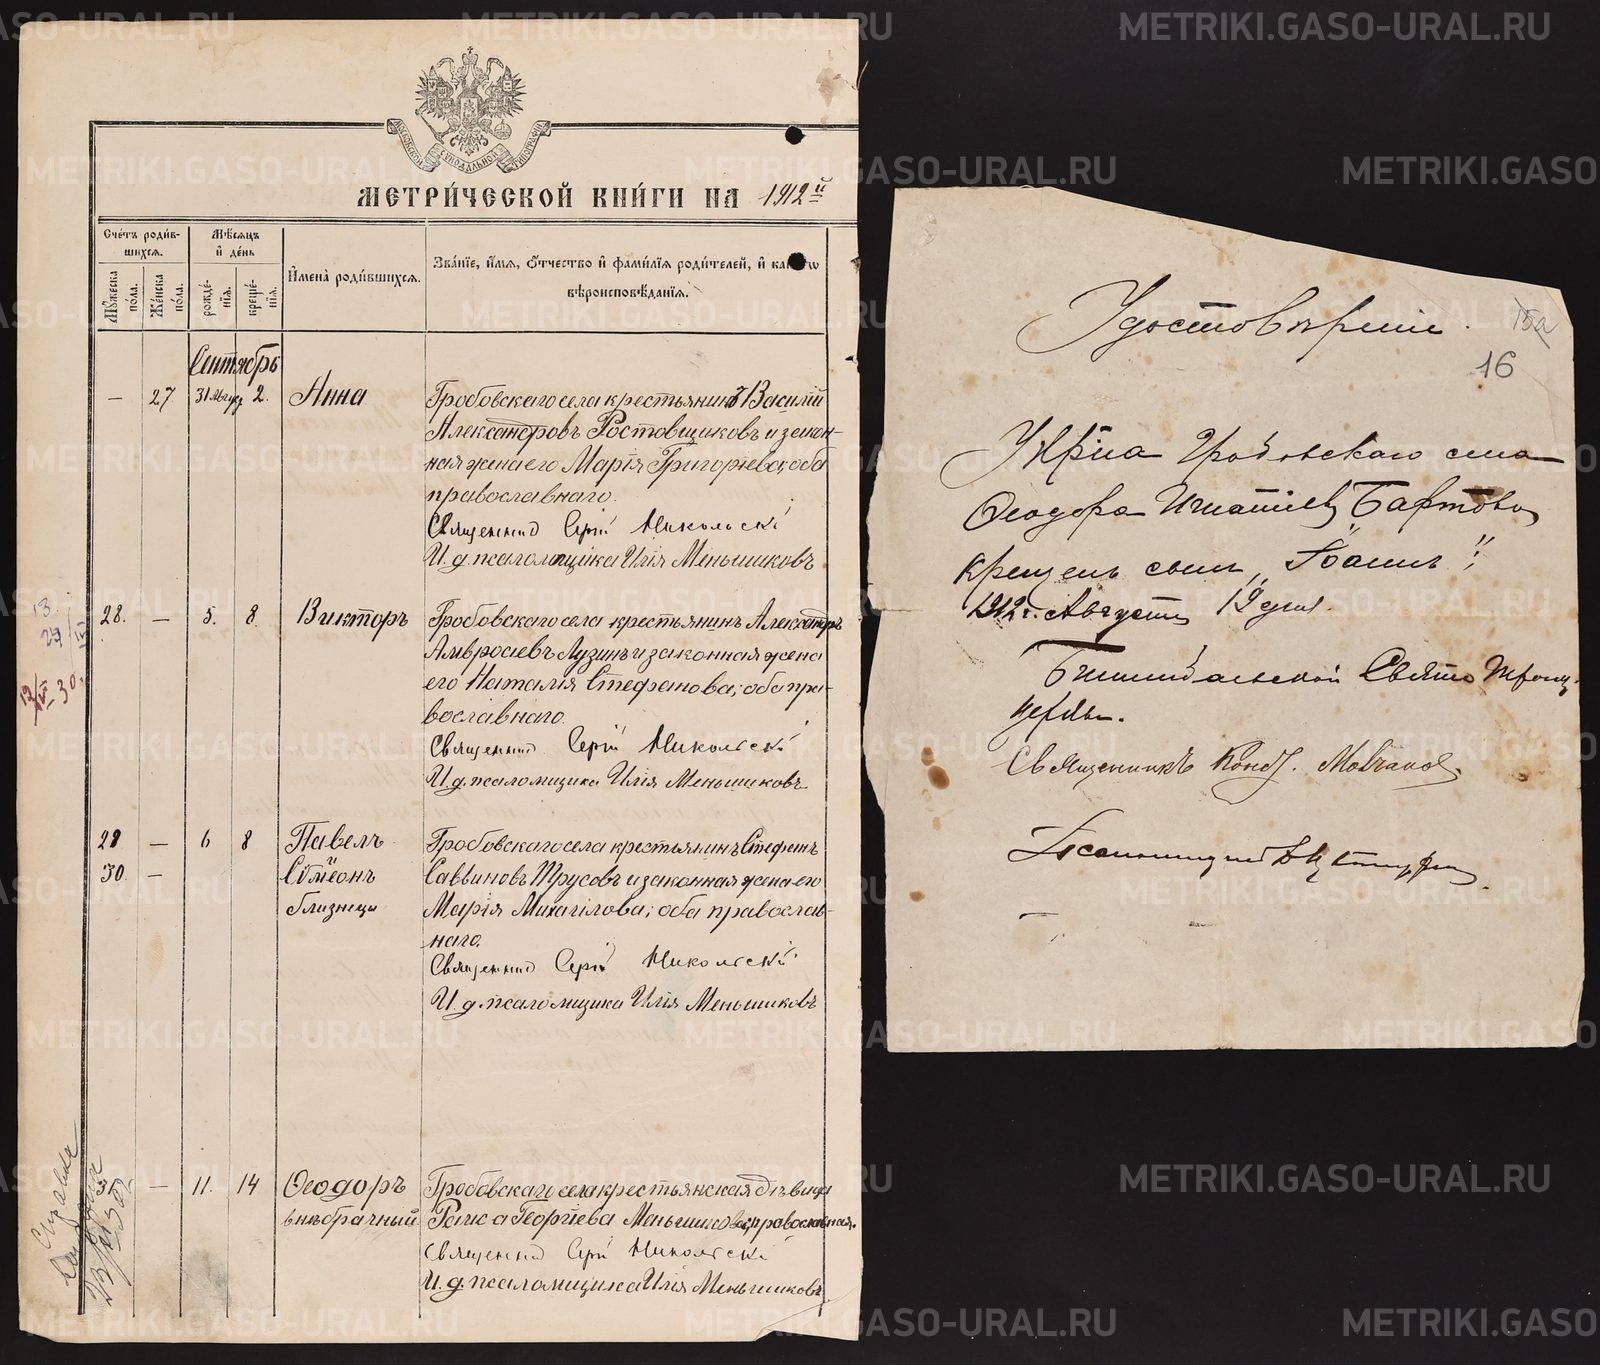 МОСКОВСКОЙ СѴНОДАЛЬНОЙ ТИПОГРАФІИ
МЕТРИ́ЧЕСКОЙ КНИ́ГИ НА 1912й
Сче́тъ роди́в-
шихся.
Мѣ́сяцъ
и҆ де́нь
Мꙋ́жеска
по́ла.
Же́нска
по́ла.
рожде́-
нїя.
креще́-
нїя.
И҆мена̀ роди́вшихся.
Зва́нїе, и҆́мя, ѻ҆́тчество и҆ фами́лїя роди́телей, и҆
вѣроисповѣ́данїя.
Сентябрь
— 27 31 Авгус 2. Анна
Гробовскаго села крестьянинъ Василій
Александровъ Ростовщиковъ и закон-
ная жена его Марія Григорьева; оба
православнаго.
Священник Сергій Никольскій
И. д. псаломщика Илія Меньшиковъ
28. — 5. 8. Викторъ
Гробовскаго села крестьянинъ Александръ
Амвросіевъ Лузинъ и законная жена
его Наталія Стефанова; оба пра-
вославнаго.
Священник Сергій Никольскій
И. д. псаломщика Илія Меньшиковъ
29 — 6 8 Павелъ
30. — Сѵмеонъ
близнецы
Гробовскаго села крестьянинъ Стефанъ
Саввиновъ Трусовъ и законная жена его
Марія Михаилова; оба православ-
наго.
Священник Сергій Никольскій
И. д. псаломщика Илія Меньшиковъ
31 — 11. 14 Ѳеодоръ
внѣбрачный
Гробовскаго села крестьянская дѣвица
Раиса Георгіева Меньшикова; православная.
Священник Сергій Никольскій
И. д. псаломщика Илія Меньшиковъ
Справка
Удостовѣреніе.
15а
16
У кр-на Гробовскаго села
Ѳеодора Игнатіева Бартова
крещенъ сынъ „Іоаннъ"
1912 г. Августа 19 дня.
Свято Троиц.
церкви.
Священникъ Конст. Мовчанов
Псаломщикъ
METRIKI.GASO-URAL.RU